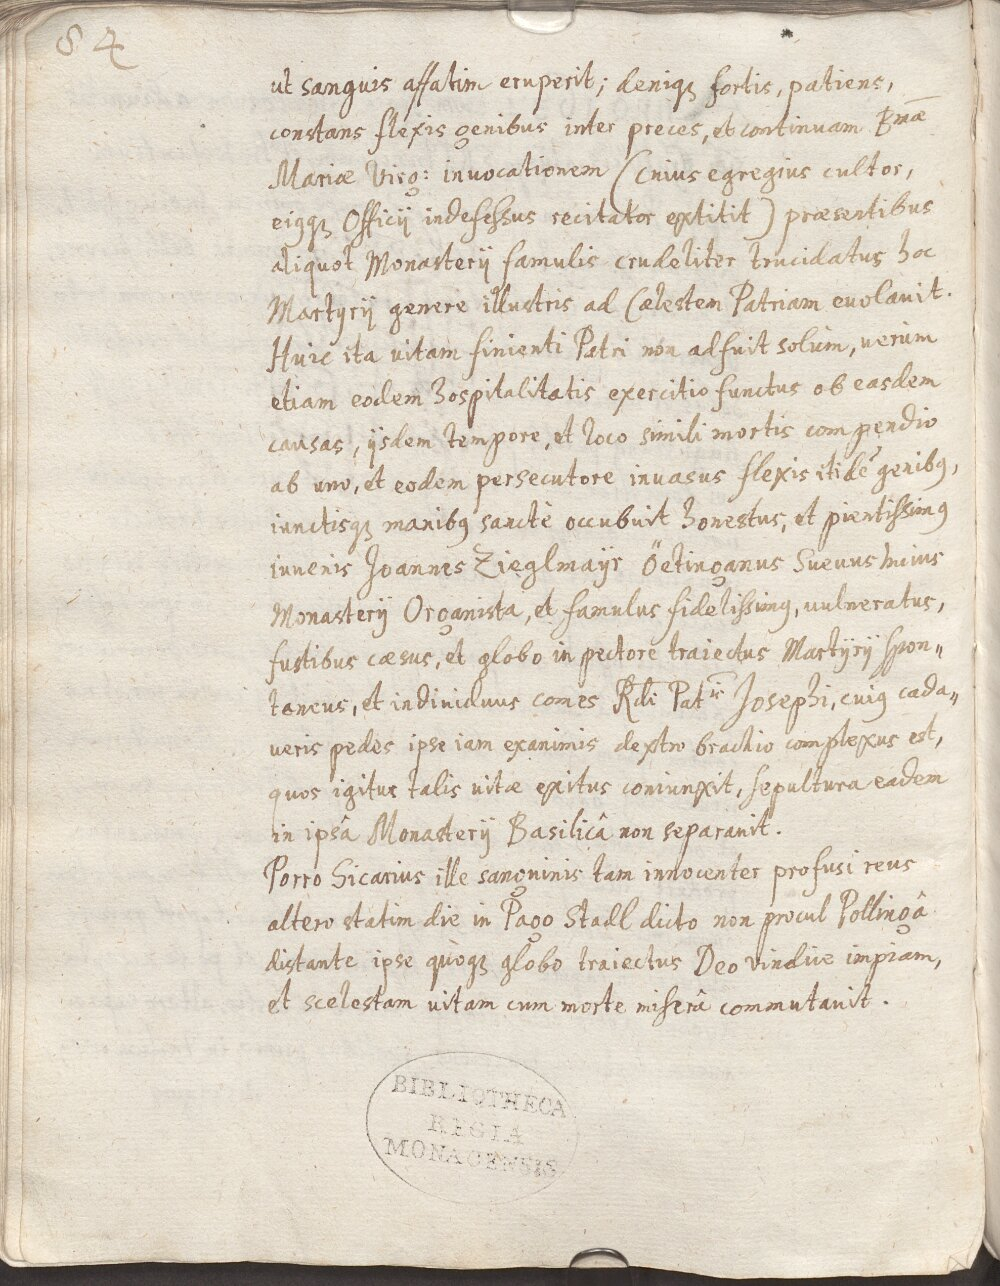 84
ut sanguis affatim eruperit; deniqꝫ fortis, patiens,
constans flexis genibus inter preces, et continuam Bmæ
Mariæ Virg: invocationem (cuius egregius cultor,
eiqqꝫ Officij indefessus recitator extitit) præsentibus
aliquot Monasterij famulis crudeliter trucidatus hoc
Martyrij genere illustris ad Cælestem Patriam euolauit.
Huic ita uitam finienti Patri non adfuit solùm, uerùm
etiam eodem hospitalitatis exercitio functus ob easdem
causas, ijsdem tempore, et loco simili mortis compendio
ab uno, et eodem persecutore inuasus flexis itidē genibꝰ,
iunctisqꝫ manibꝰ sanctè occubuit honestus, et pientissimꝰ
iuuenis Joannes Zieglmayr Öetinganus Sueuus huius
Monasterij Organista, et famulus fidelissimꝰ, uulneratus,
fustibus cæsus, et globo in pectore traiectus Martyrij spon„
taneus, et indiuiduus comes Rdi Patris Josephi, cuiꝰ cada„
ueris pedes ipse iam exanimis dextro brachio complexus est,
quos igitur talis uitæ exitus coniunxit, sepultura eadem
in ipsâ Monasterij Basilicâ non separauit.
Porro Sicarius ille sanguinis tam innocenter profusi reus
altero statim die in Pago Stadl dicto non procul Pollingâ
distante ipse quoqꝫ globo traiectus Deo vindice impiam,
et scelestam uitam cum morte miserâ commutauit.
BIBLIOTHECA
REGIA
MONACENSIS